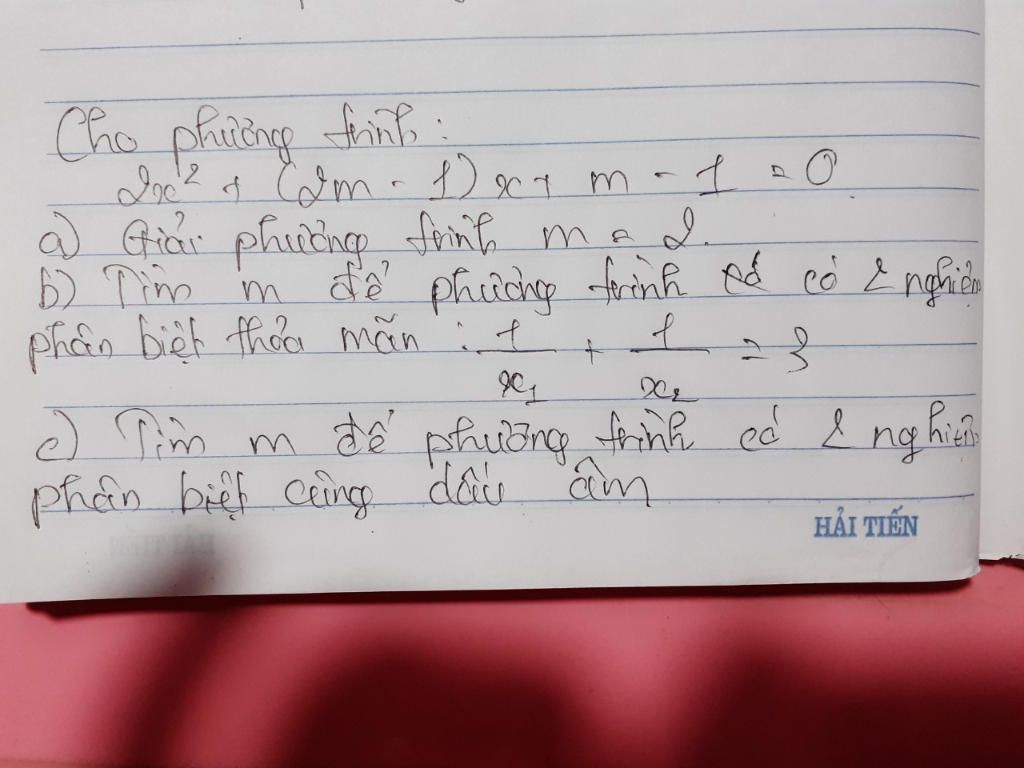 Cho phương trình:
2x² + (2m - 1)x + m - 1 = 0
a) Giải phương trình m = 2.
b) Tìm m để phương trình có 2 nghiệm
phân biệt thỏa mãn : 1/x₁ + 1/x₂ = 3
c) Tìm m để phương trình có 2 nghiệm
phân biệt cùng dấu âm
HẢI TIẾN